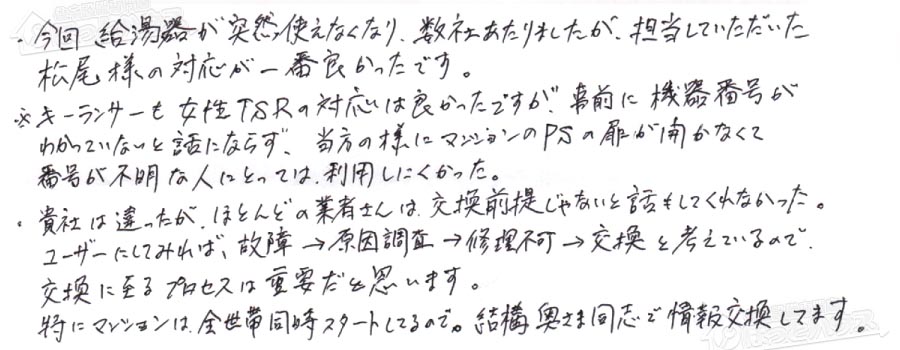 ・今回 給湯器が突然使えなくなり、数社あたりましたが、担当していただいた
松尾様の対応が一番良かったです。
※キーランサーも女性TSRの対応は良かったですが、事前に機器番号が
わかっていないと話にならず、当方の様にマンションのPSの扉が開かなくて
番号が不明な人にとっては、利用しにくかった。
・貴社は違ったが、ほとんどの業者さんは、交換前提じゃないと話もしてくれなかった。
ユーザーにしてみれば、故障→原因調査→修理不可→交換と考えているので、
交換に至るプロセスは重要だと思います。
特にマンションは、全世帯同時スタートしてるので。結構奥さま同志で情報交換してます。